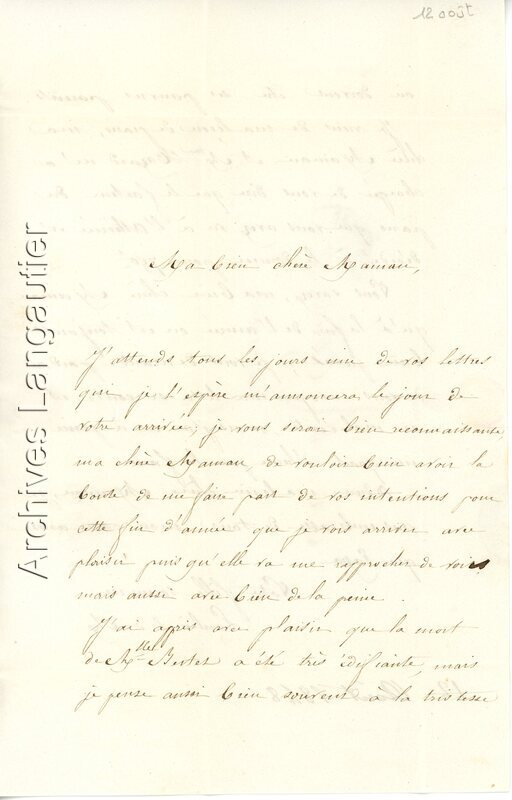 12 août
Ma bien chère Maman,
J'attends tous les jours une de vos lettres
qui je l'espère m'annoncera le jour de
votre arrivée; je vous serai bien reconnaissante
ma chère Maman, de vouloir bien avoir la
bonté de me faire part de vos intentions pour
cette fin d'année que je vois arriver avec
plaisir puis qu'elle va me rapprocher de vous
mais aussi avec bien de la peine.
J'ai appris avec plaisir que la mort
de Mlle Berlet a été très édifiante, mais
je pense aussi bien souvent à la tristesse
Archives Langautier